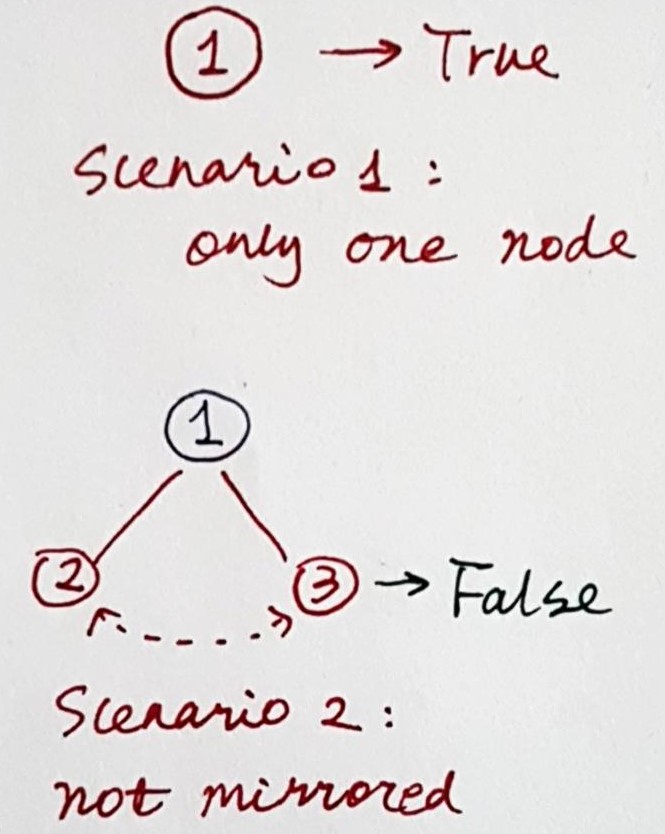 1 → True
Scenario 1 :
only one node
1
2 3 → False
Scenario 2 :
not mirrored